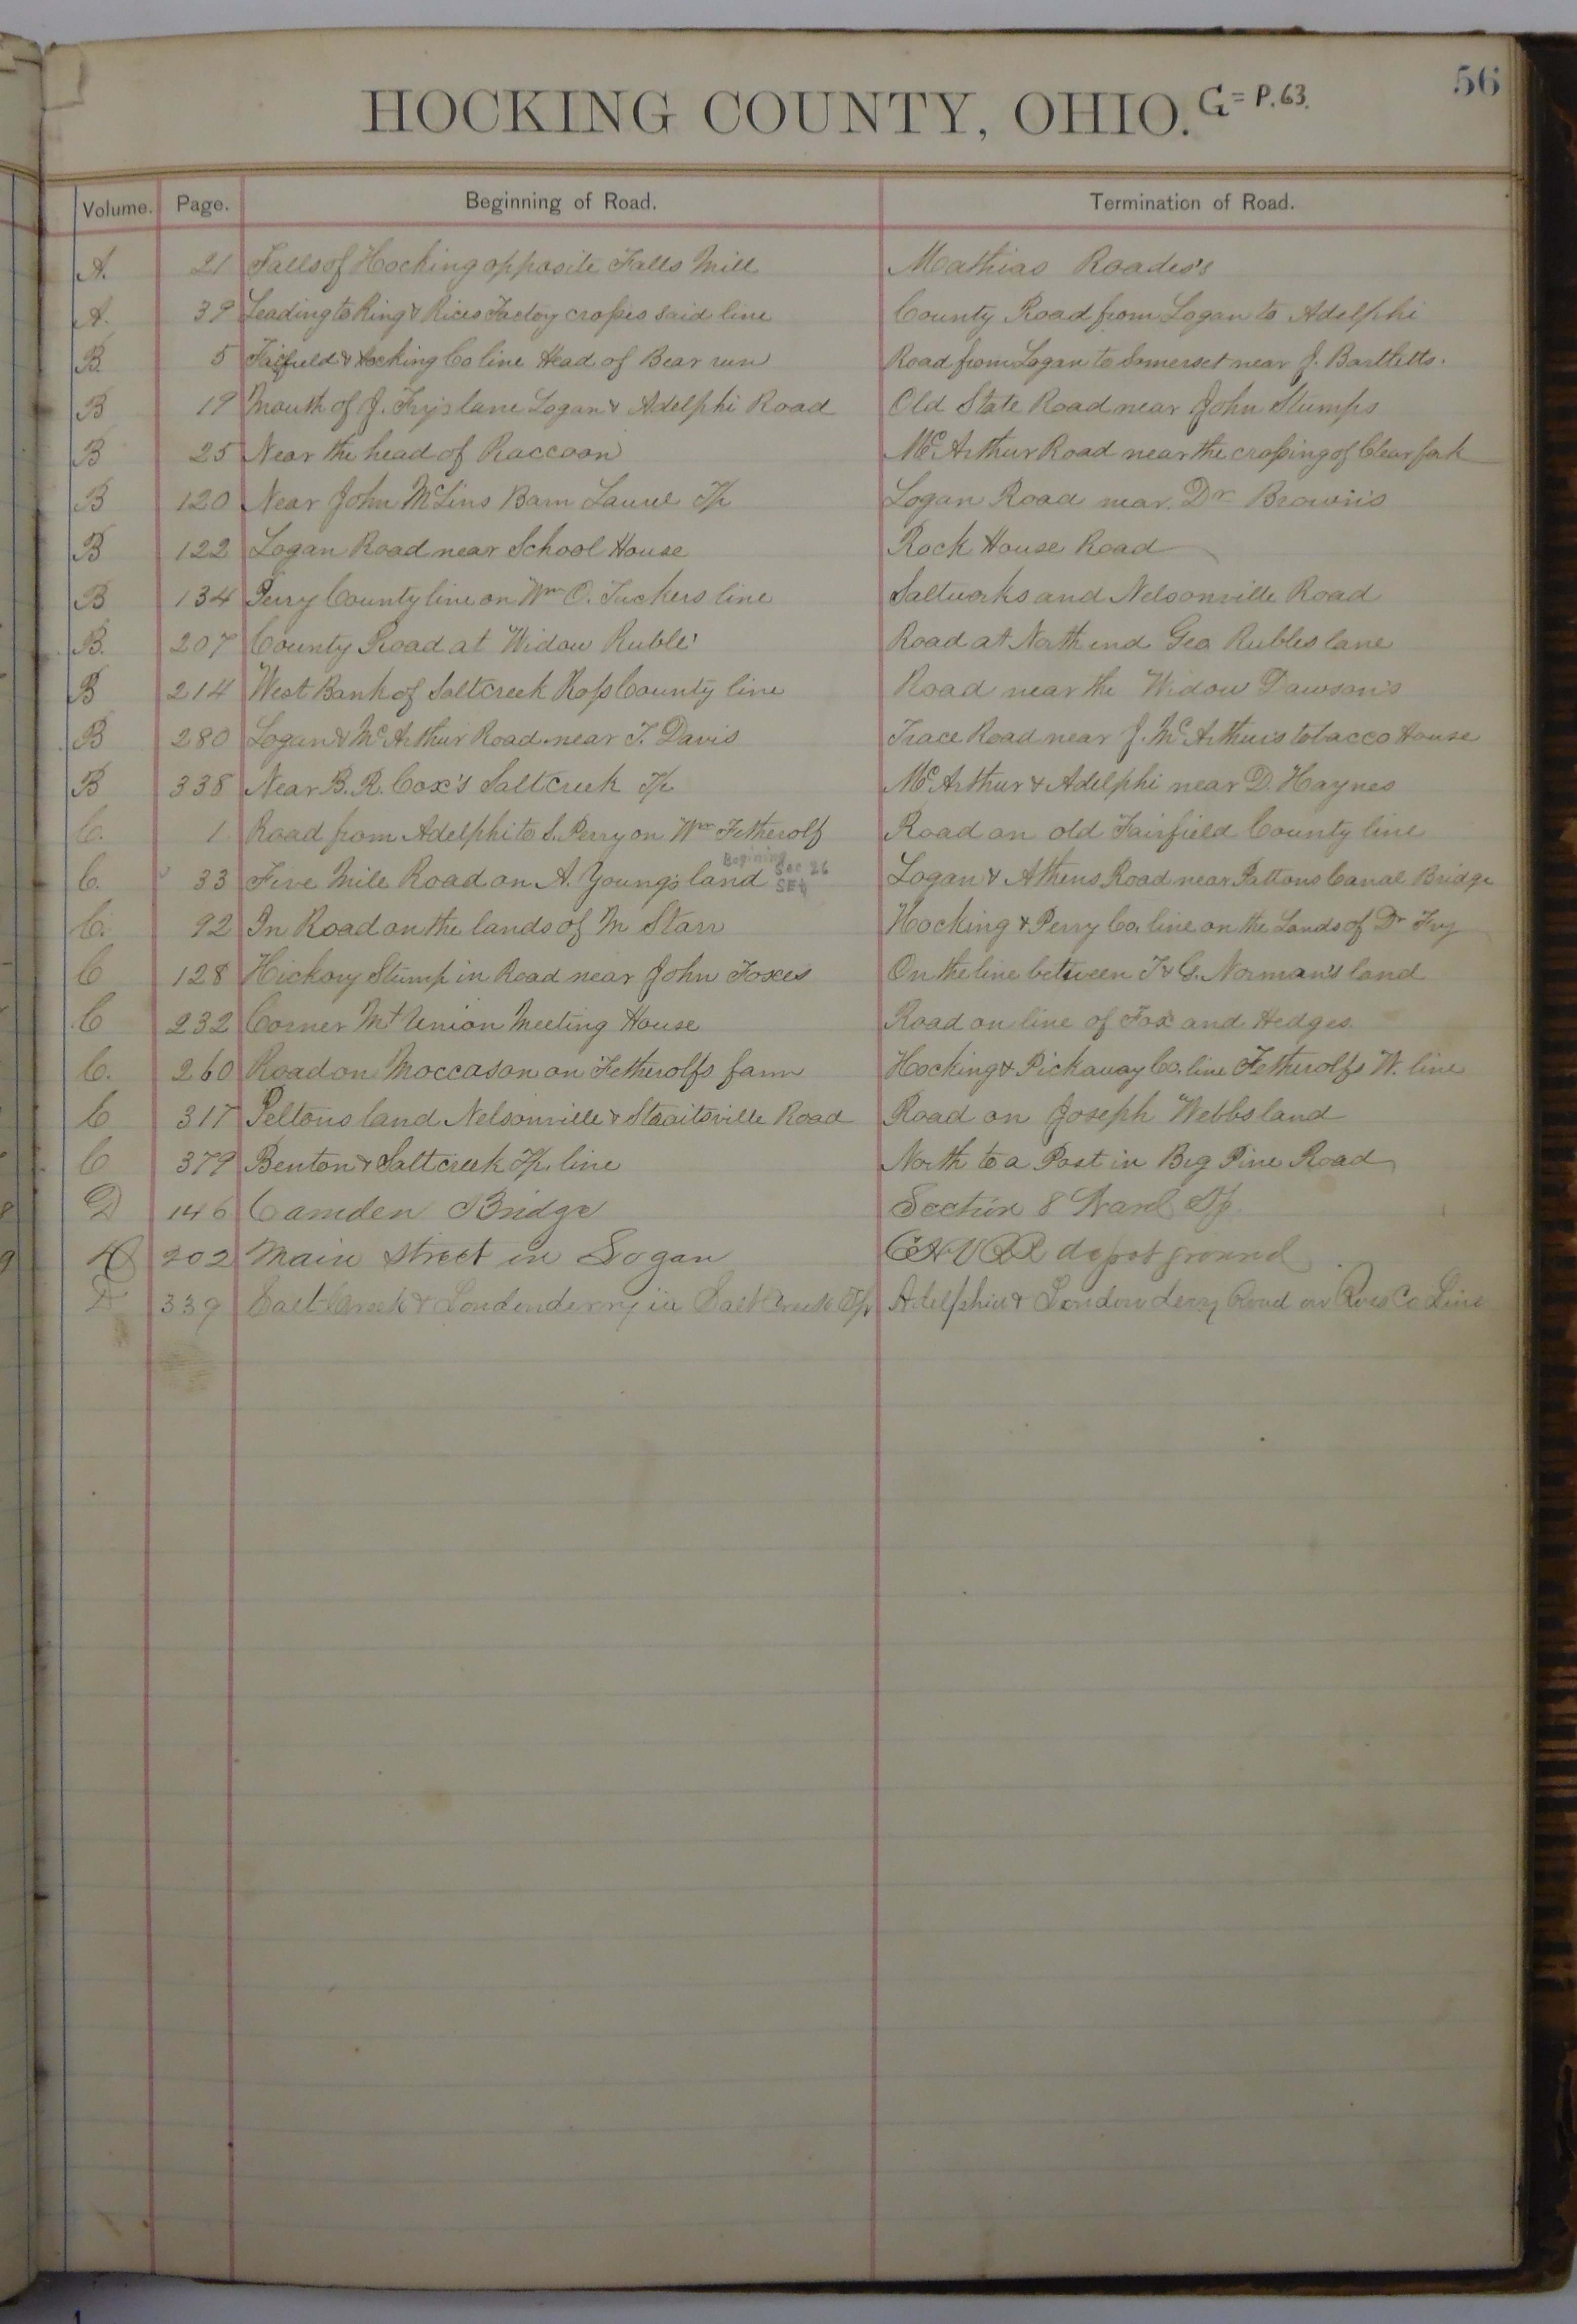 56
HOCKING COUNTY, OHIO. G = P. 63.
Volume. Page. Beginning of Road. Termination of Road.
A. 21 Falls of Hocking opposite Falls Mill Mathias Roades's
A. 39 Leading to Ring & Rices Factory crosses said line County Road from Logan to Adelphi
B 5 Fairfield & Hocking Co line Head of Bear run Road from Logan to Somerset near J. Bartletts.
B 19 Mouth of J. Fry's lane Logan & Adelphi Road Old State Road near John Stumps
B 25 Near the head of Raccoon McArthur Road near the crossing of Clear fork
B 120 Near John McLins Barn Laurel Tp Logan Road near Dr Brown's
B 122 Logan Road near School House Rock House Road
B 134 Perry County line on Wm O. Tuckers line Saltworks and Nelsonville Road
B. 207 County Road at Widow Ruble' Road at North end Geo Rubles lane
B 214 West Bank of Saltcreek Ross County line Road near the Widow Dawson's
B 280 Logan & McArthur Road near T. Davis Trace Road near J. McArthurs tobacco House
B 338 Near B. R. Cox's Saltcreek Tp McArthur & Adelphi near D. Haynes
C. 1 Road from Adelphi to S. Perry on Wm Fetherolf Road on old Fairfield County line
C. 33 Five Mile Road on A. Young's land Begining Sec 26 SE4 Logan & Athens Road near Pattons Canal Bridge
C. 92 In Road on the lands of M Starr Hocking & Perry Co. line on the Lands of Dr Fry
C 128 Hickory Stump in Road near John Foxes On the line between J & G. Norman's land
C 232 Corner Mt Union Meeting House Road on line of Fox and Hedges.
C. 260 Road on Moccason on Fetherolfs farm Hocking & Pickaway Co. line Fetherolfs W. line
C 317 Peltons land Nelsonville & Straitsville Road Road on Joseph Webbs land
C 379 Benton & Saltcreek Tp. line North to a Post in Big Pine Road
D 146 Camden Bridge Section 8 Ward Tp.
D 202 Main Street in Logan C&HV RR depot ground
D 339 Salt Creek & Londonderry in Salt Creek Tp Adelphia & Londonderry Road on Ross Co Line